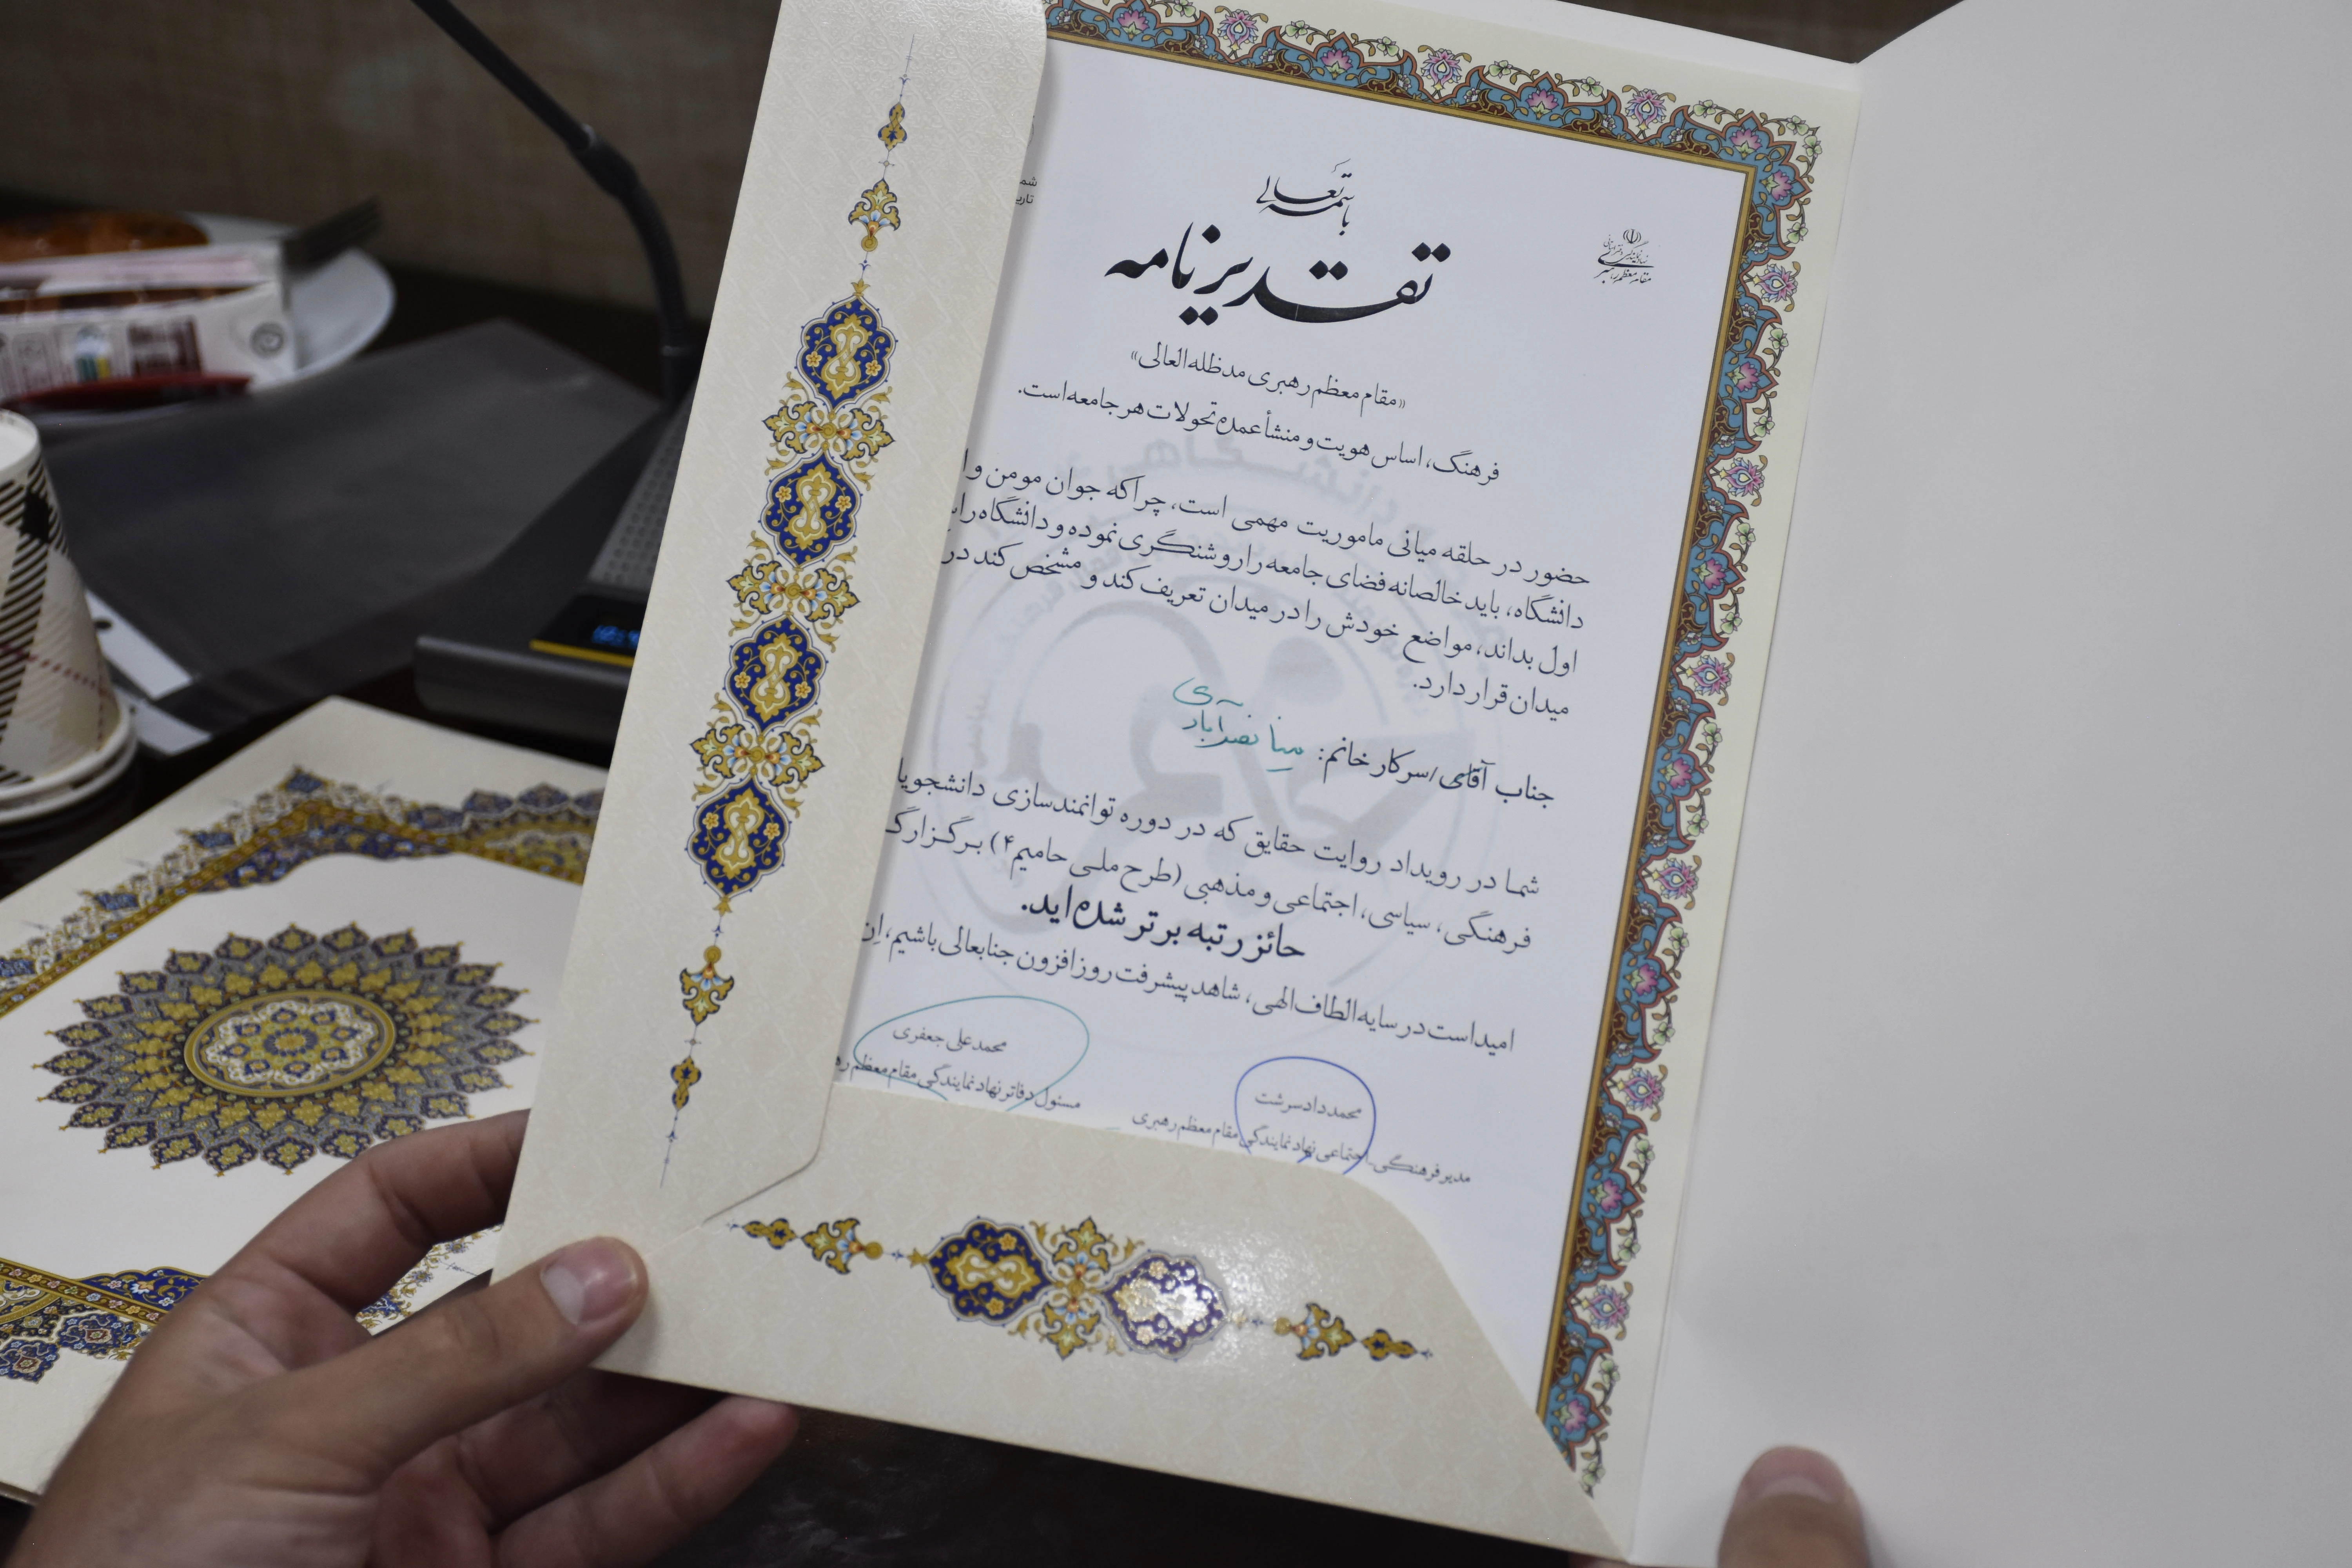 باسمه تعالی
تقدیرنامه
شما
تاری
نهاد نمایندگی
مقام معظم رهبری
«مقام معظم رهبری مدظله العالی»
فرهنگ، اساس هویت و منشأ عمده تحولات هر جامعه است.
حضور در حلقه میانی ماموریت مهمی است، چراکه جوان مومن و ا
دانشگاه، باید خالصانه فضای جامعه را روشنگری نموده و دانشگاه را
اول بداند، مواضع خودش را در میدان تعریف کند و مشخص کند در
میدان قرار دارد.
جناب آقای/سرکار خانم: مینا نصرآبادی
شما در رویداد روایت حقایق که در دوره توانمندسازی دانشجویا
فرهنگی، سیاسی، اجتماعی و مذهبی (طرح ملی حامیم۴) برگزار گ
حائز رتبه برتر شده اید.
امید است در سایه الطاف الهی، شاهد پیشرفت روز افزون جنابعالی باشیم، اِن
محمد دادسرشت
مدیر فرهنگی-اجتماعی نهاد نمایندگی مقام معظم رهبری
محمدعلی جعفری
مسئول دفاتر نهاد نمایندگی مقام معظم ره